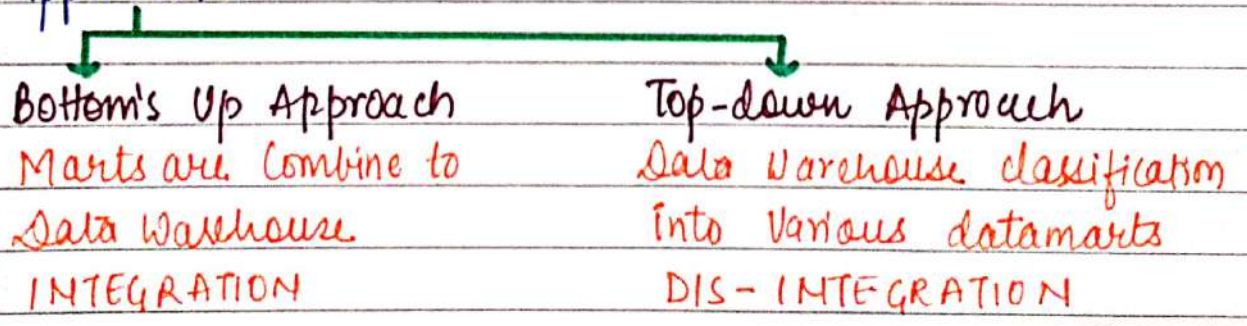 Bottom's Up Approach
Marts are Combine to
Data Warehouse
INTEGRATION
Top-down Approach
Data Warehouse classification
into Various datamarts
DIS-INTEGRATION